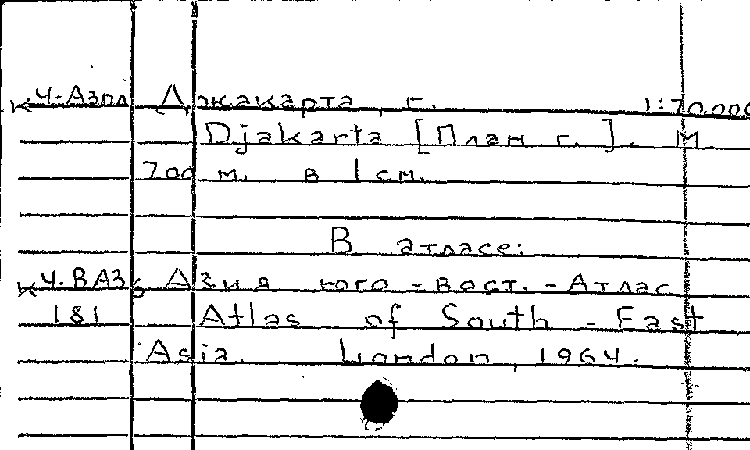 К 4-Азпл Джакарта, г. 1:70.000
Djakarta [План г.]. М
700 м. в 1 см.
В атласе:
К 4.ВАЗ Азия юго-вост. - Атлас
181 Atlas of South-East
Asia. London, 1964.